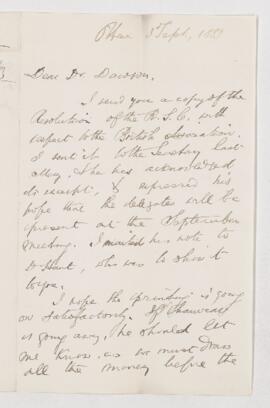 3 Sept, 1883
Dear Dr Dawson,
I send you a copy of the
Resolution of the R. S. C. with
respect to the British Association.
I sent it to the Secretary last
May. He has acknowledged
its receipt, & expressed his
hope that the delegates will be
present at the September
meeting. I mailed his note to
Dr Hunt, who was to show it
to you.
I hope the printing is going
on satisfactorily. If
is going away, he should let
me know, as we must draw
all the money before the